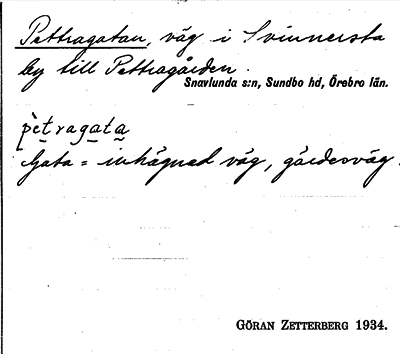 Pettragatan, väg i Svinnersta
by till Pettragården.
Snavlunda s:n, Sundbo hd, Örebro län.
pètragata
Gata = inhägnad väg, gårdesväg.
GÖRAN ZETTERBERG 1934.